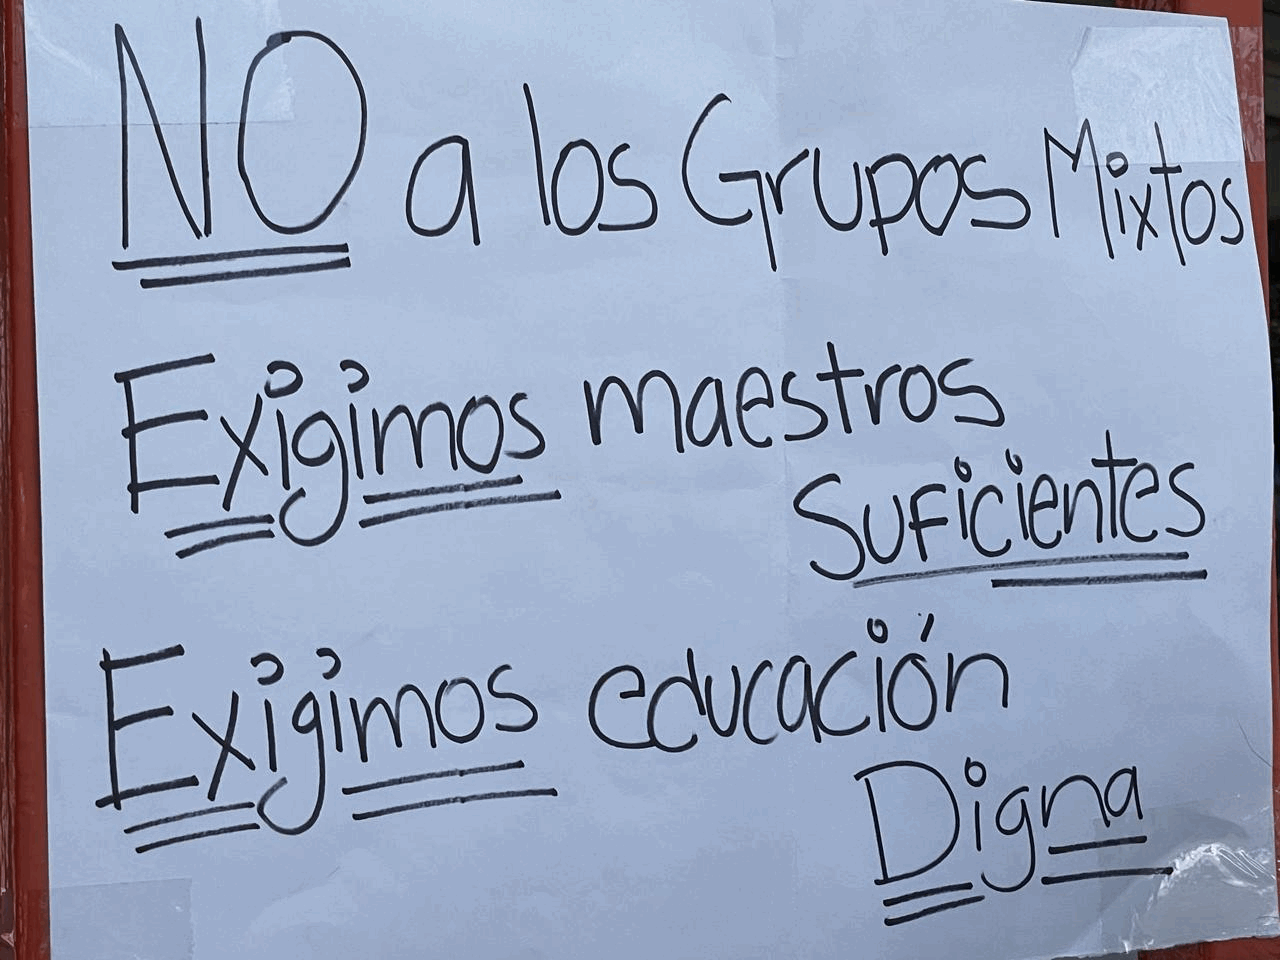 NO a los Grupos Mixtos
Exigimos maestros
Suficientes
Exigimos educación
Digna